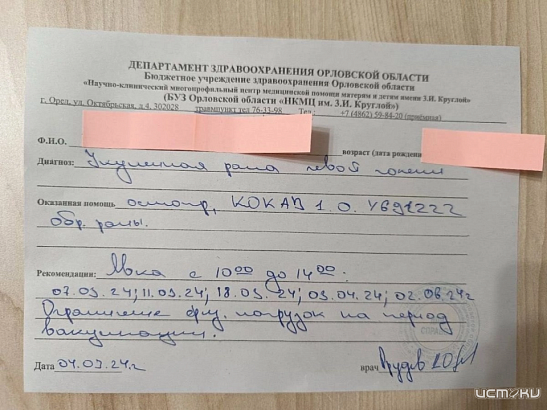 ДЕПАРТАМЕНТ ЗДРАВООХРАНЕНИЯ ОРЛОВСКОЙ ОБЛАСТИ
Бюджетное учреждение здравоохранения Орловской области
«Научно-клинический многопрофильный центр медицинской помощи матерям и детям имени З.И. Круглой»
(БУЗ Орловской области «НКМЦ им. З.И. Круглой»)
г. Орел, ул. Октябрьская, д 4. 302028 травмпункт тел 76-13-98 Тел.: +7 (4862) 59-84-20 (приёмная)
Ф.И.О. возраст (дата рождения
Диагноз: Укушенная рана левой голени
Оказанная помощь осмотр, КОКАВ 1.0. У691222
обр. раны.
Рекомендации: Явка с 10 00 до 14 00:
07.03.24; 11.03.24; 18.03.24; 03.04.24; 02.06.24г
Ограничение физ. нагрузок на период
вакцинации.
Дата 04.03.24г врач
истоки